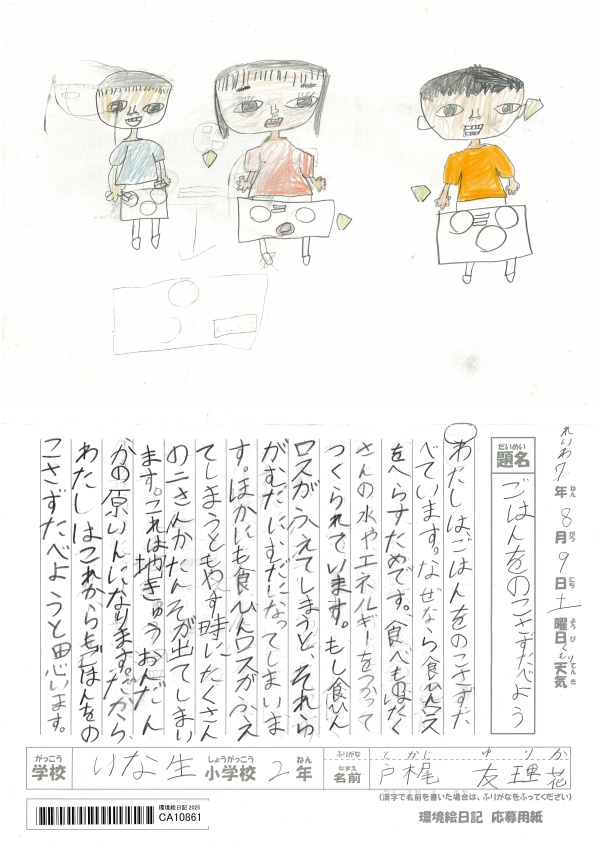 れいわ7年8月9日土曜日 天気
ねん がつ にち ようび てんき
だいめい
題名
ごはんをのこさずたべよう
わたしはごはんをのこさずた
べています。なぜなら、食ひんロス
をへらすためです。食べものはたく
さんの水やエネルギーをつかって
つくられています。もし食ひん
ロスがふえてしまうと、それら
がむだにむだになってしまいま
す。ほかにも食ひんロスがふえ
てしまうともやす時にたくさん
のニさんかたんそが出てしまい
ます。これは地きゅうおんだん
かの原いんになります。だから、
わたしはこれからもごはんをの
こさずたべようと思います。
がっこう しょうがっこう ねん ふりがな とかじ ゆりか
学校 いな生 小学校 2年 なまえ 名前 戸梶 友理花
(漢字で名前を書いた場合は、ふりがなをふってください)
環境絵日記 2025
CA10861
環境絵日記 応募用紙